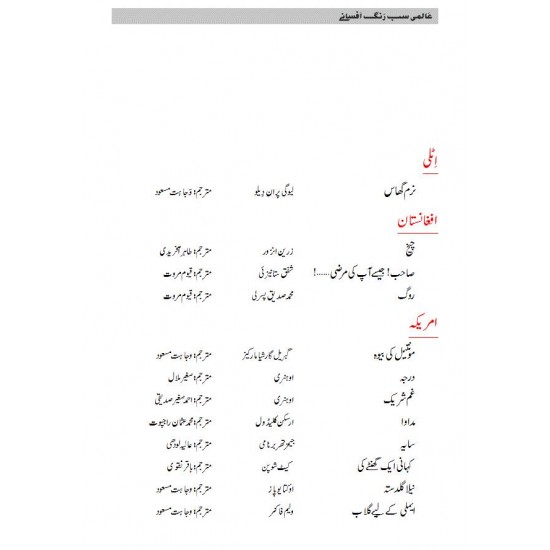 عالمی سب رنگ افسانے
اٹلی
نرم گھاس لیوگی پران دیلو مترجم: وجاہت مسعود
افغانستان
چیخ زرین انزور مترجم: طاہر آفریدی
صاحب! جیسے آپ کی مرضی......! شفق ستانیزئی مترجم: قیوم مروت
روگ محمد صدیق پسرلی مترجم: قیوم مروت
امریکہ
مونتیل کی بیوہ گبریل گارشیا مارکیز مترجم: وجاہت مسعود
درجہ او ہنری مترجم: صغیر ملال
غم شریک او ہنری مترجم: احمد صغیر صدیقی
مداوا ارسکن کلیڈول مترجم: محمد عثمان راجپوت
سایہ مترجم: عالیہ لودھی
کہانی ایک گھنٹے کی کیٹ شوپن مترجم: باقر نقوی
نیلا گلدستہ اوکتاویو پاز مترجم: وجاہت مسعود
ایملی کے لیے گلاب ولیم فاکنر مترجم: وجاہت مسعود